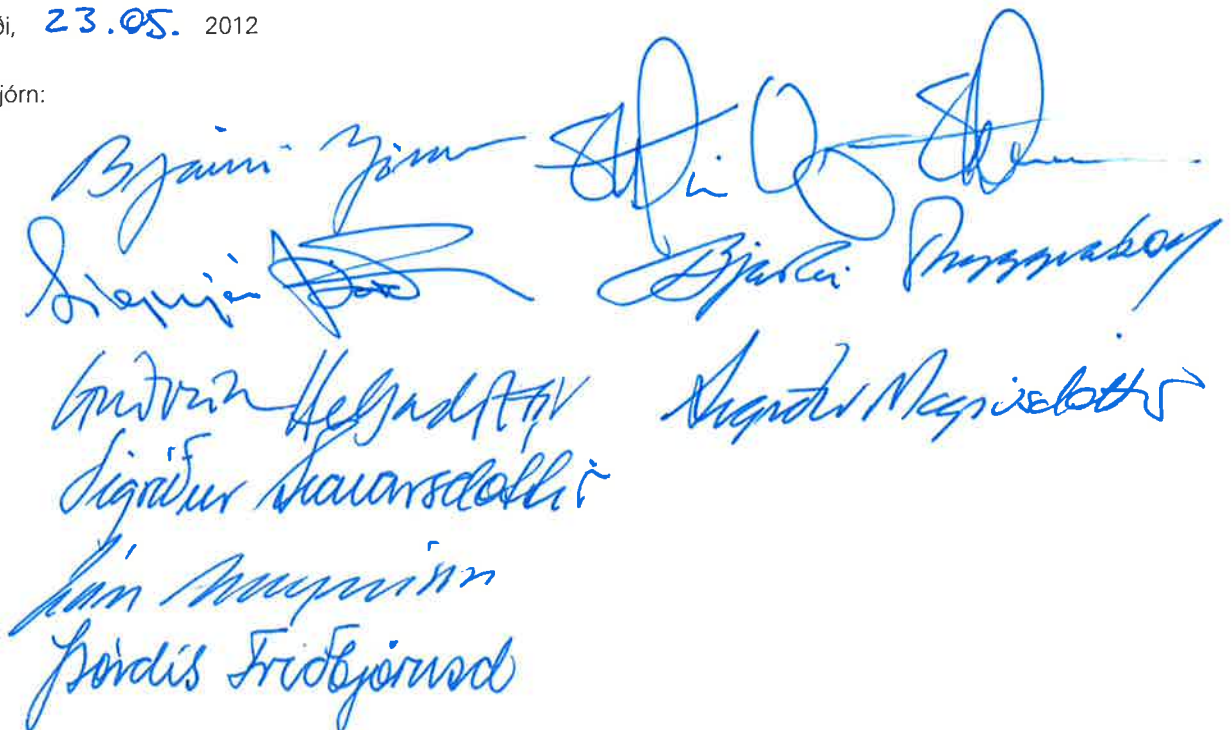 ði, 23.05. 2012
jórn:
Bjarni Jóns
Sigurjón
Bjarki Tryggvason
Guðrún Helgadóttir Sigríður Magnúsdóttir
Sigríður Svavarsdóttir
Jón Magnússon
Þórdís Friðbjörnsd